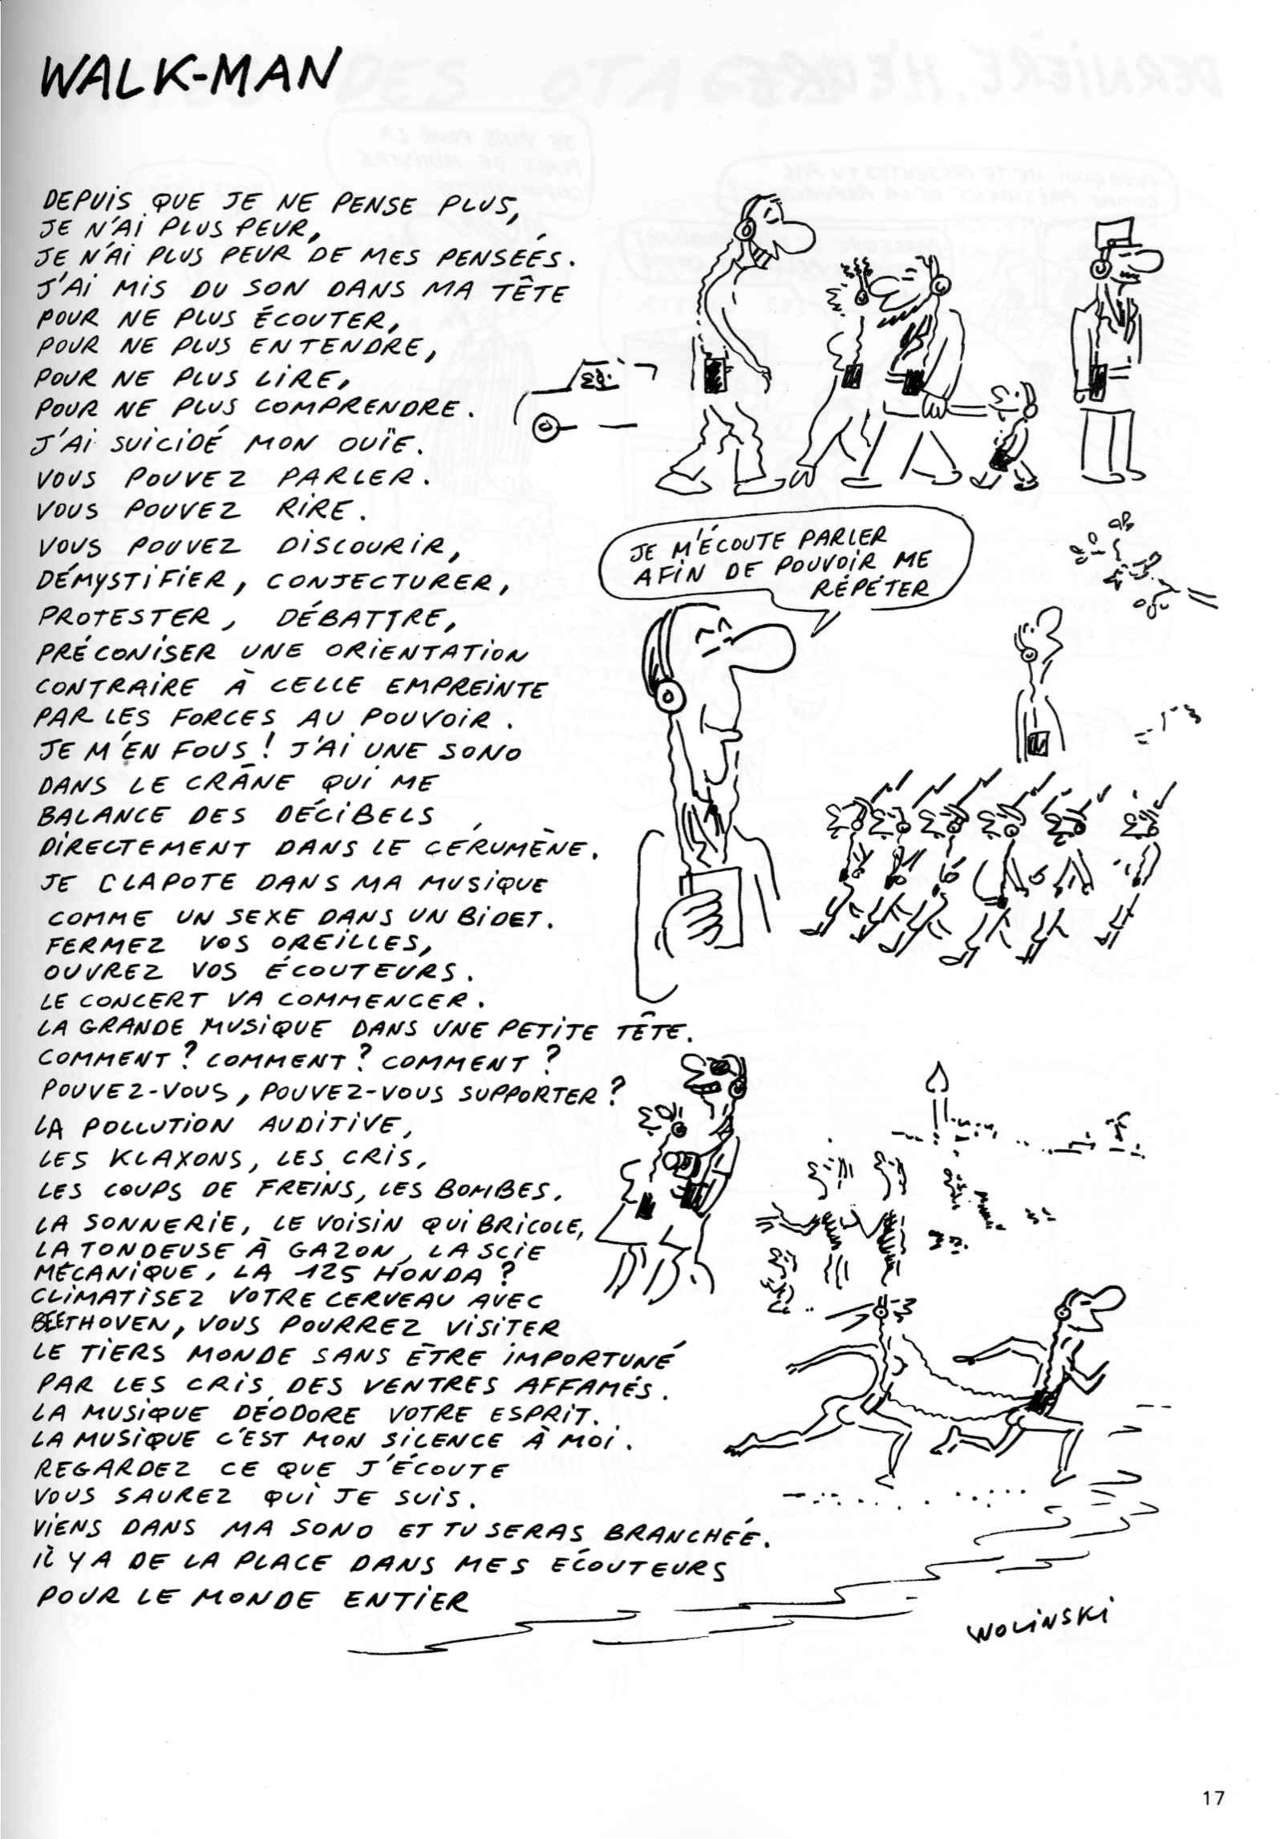 WALK-MAN
DEPUIS QUE JE NE PENSE PLUS,
JE N'AI PLUS PEUR,
JE N'AI PLUS PEUR DE MES PENSÉES.
J'AI MIS DU SON DANS MA TÊTE
POUR NE PLUS ÉCOUTER,
POUR NE PLUS ENTENDRE,
POUR NE PLUS LIRE,
POUR NE PLUS COMPRENDRE.
J'AI SUICIDÉ MON OUÏE.
VOUS POUVEZ PARLER.
VOUS POUVEZ RIRE.
VOUS POUVEZ DISCOURIR,
DÉMYSTIFIER, CONJECTURER,
PROTESTER, DÉBATTRE,
PRÉCONISER UNE ORIENTATION
CONTRAIRE À CELLE EMPREINTE
PAR LES FORCES AU POUVOIR.
JE M'EN FOUS! J'AI UNE SONO
DANS LE CRÂNE QUI ME
BALANCE DES DÉCIBELS
DIRECTEMENT DANS LE CÉRUMÈNE.
JE CLAPOTE DANS MA MUSIQUE
COMME UN SEXE DANS UN BIDET.
FERMEZ VOS OREILLES,
OUVREZ VOS ÉCOUTEURS.
LE CONCERT VA COMMENCER.
LA GRANDE MUSIQUE DANS UNE PETITE TÊTE.
COMMENT? COMMENT? COMMENT?
POUVEZ-VOUS, POUVEZ-VOUS SUPPORTER?
LA POLLUTION AUDITIVE,
LES KLAXONS, LES CRIS,
LES COUPS DE FREINS, LES BOMBES.
LA SONNERIE, LE VOISIN QUI BRICOLE,
LA TONDEUSE À GAZON, LA SCIE
MÉCANIQUE, LA 125 HONDA?
CLIMATISEZ VOTRE CERVEAU AVEC
BEETHOVEN, VOUS POURREZ VISITER
LE TIERS MONDE SANS ÊTRE IMPORTUNÉ
PAR LES CRIS DES VENTRES AFFAMÉS.
LA MUSIQUE DÉODORE VOTRE ESPRIT.
LA MUSIQUE C'EST MON SILENCE À MOI.
REGARDEZ CE QUE J'ÉCOUTE
VOUS SAUREZ QUI JE SUIS.
VIENS DANS MA SONO ET TU SERAS BRANCHÉE.
IL Y A DE LA PLACE DANS MES ÉCOUTEURS
POUR LE MONDE ENTIER
JE M'ÉCOUTE PARLER
AFIN DE POUVOIR ME
RÉPÉTER
WOLINSKI
17